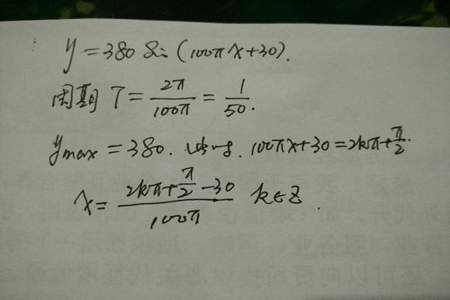 y=380 Sin (100πx+30).
周期 T=2π/100π=1/50.
ymax=380. 此时. 100πx+30=2kπ+π/2.
x=(2kπ+π/2-30)/100π k∈Z.